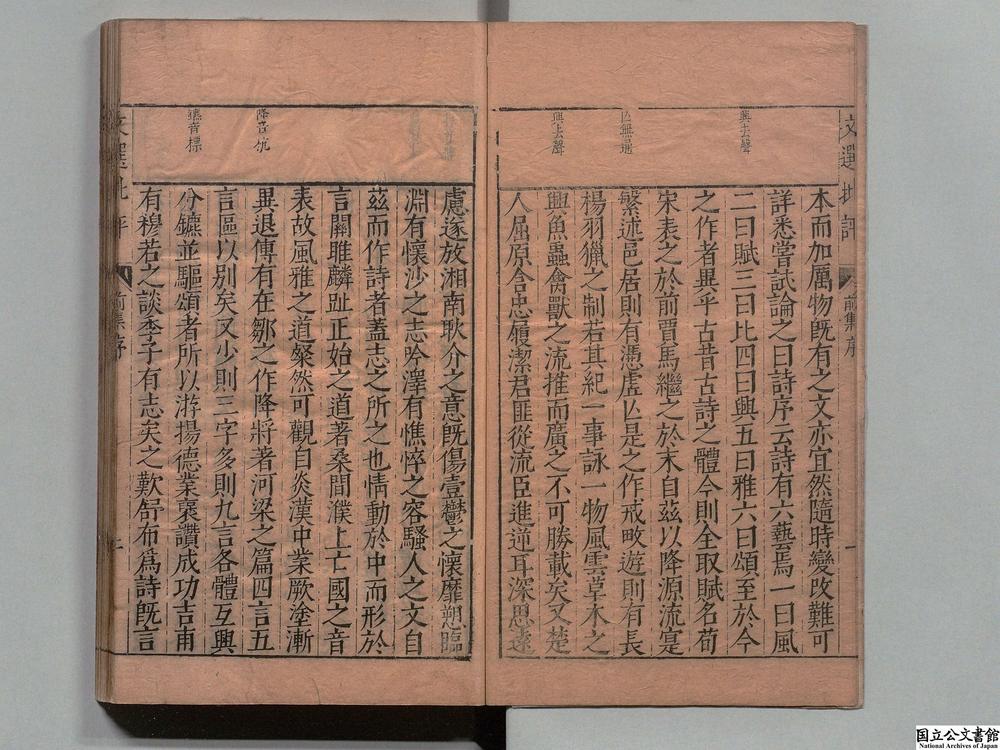 文選批評
前集序
一
興去聲
亾無通
興去聲
本而加厲物旣有之文亦宜然隨時變改難可
詳悉嘗試論之曰詩序云詩有六藝焉一曰風
二曰賦三曰比四曰興五曰雅六曰頌至於今
之作者異乎古昔古詩之體今則全取賦名荀
宋表之於前賈馬繼之於末自茲以降源流寔
繁述邑居則有憑虛亾是之作戒畋遊則有長
楊羽獵之制若其紀一事詠一物風雲草木之
興魚蟲禽獸之流推而廣之不可勝載矣又楚
人屈原含忠履潔君匪從流臣進逆耳深思遠
慮遂放湘南耿介之意旣傷壹鬱之懷靡愬臨
淵有懷沙之志吟澤有憔悴之容騷人之文自
茲而作詩者蓋志之所之也情動於中而形於
言關雎麟趾正始之道著桑間濮上亡國之音
表故風雅之道粲然可觀自炎漢中業厥塗漸
異退傅有在鄒之作降將著河梁之篇四言五
言區以別矣又少則三字多則九言各體互興
分鑣並驅頌者所以游揚德業裹讚成功吉甫
有穆若之談季子有志矣之歎舒布爲詩旣言
降音杭
鑣音標
文選批評
前集序
國立公文書館
National Archives of Japan